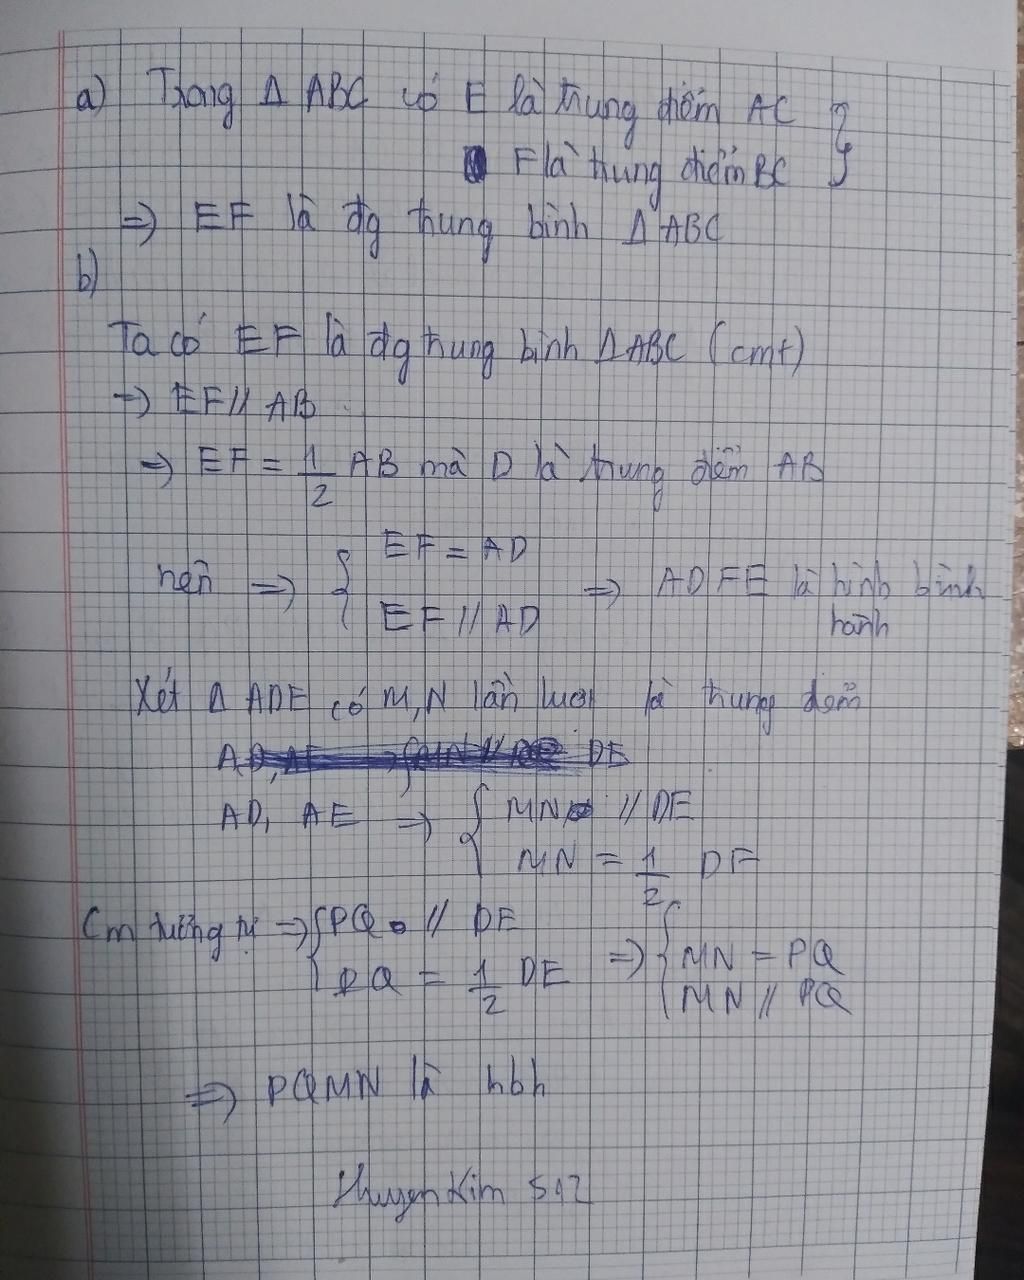 a) Trong Δ ABC có E là trung điểm AC }
F là trung điểm BC
=> EF là đg trung bình Δ ABC
b)
Ta có EF là đg trung bình ΔABC (cmt)
=> EF // AB
=> EF = 1/2 AB mà D là trung điểm AB
nên => { EF = AD
EF // AD => ADFE là hình bình
hành
Xét Δ ADE có M, N lần lượt là trung điểm
AD, AE => { MN // DE
MN = 1/2 DE
Cm tương tự => { PQ // DE
PQ = 1/2 DE => { MN = PQ
MN // PQ
=> PQMN là hbh